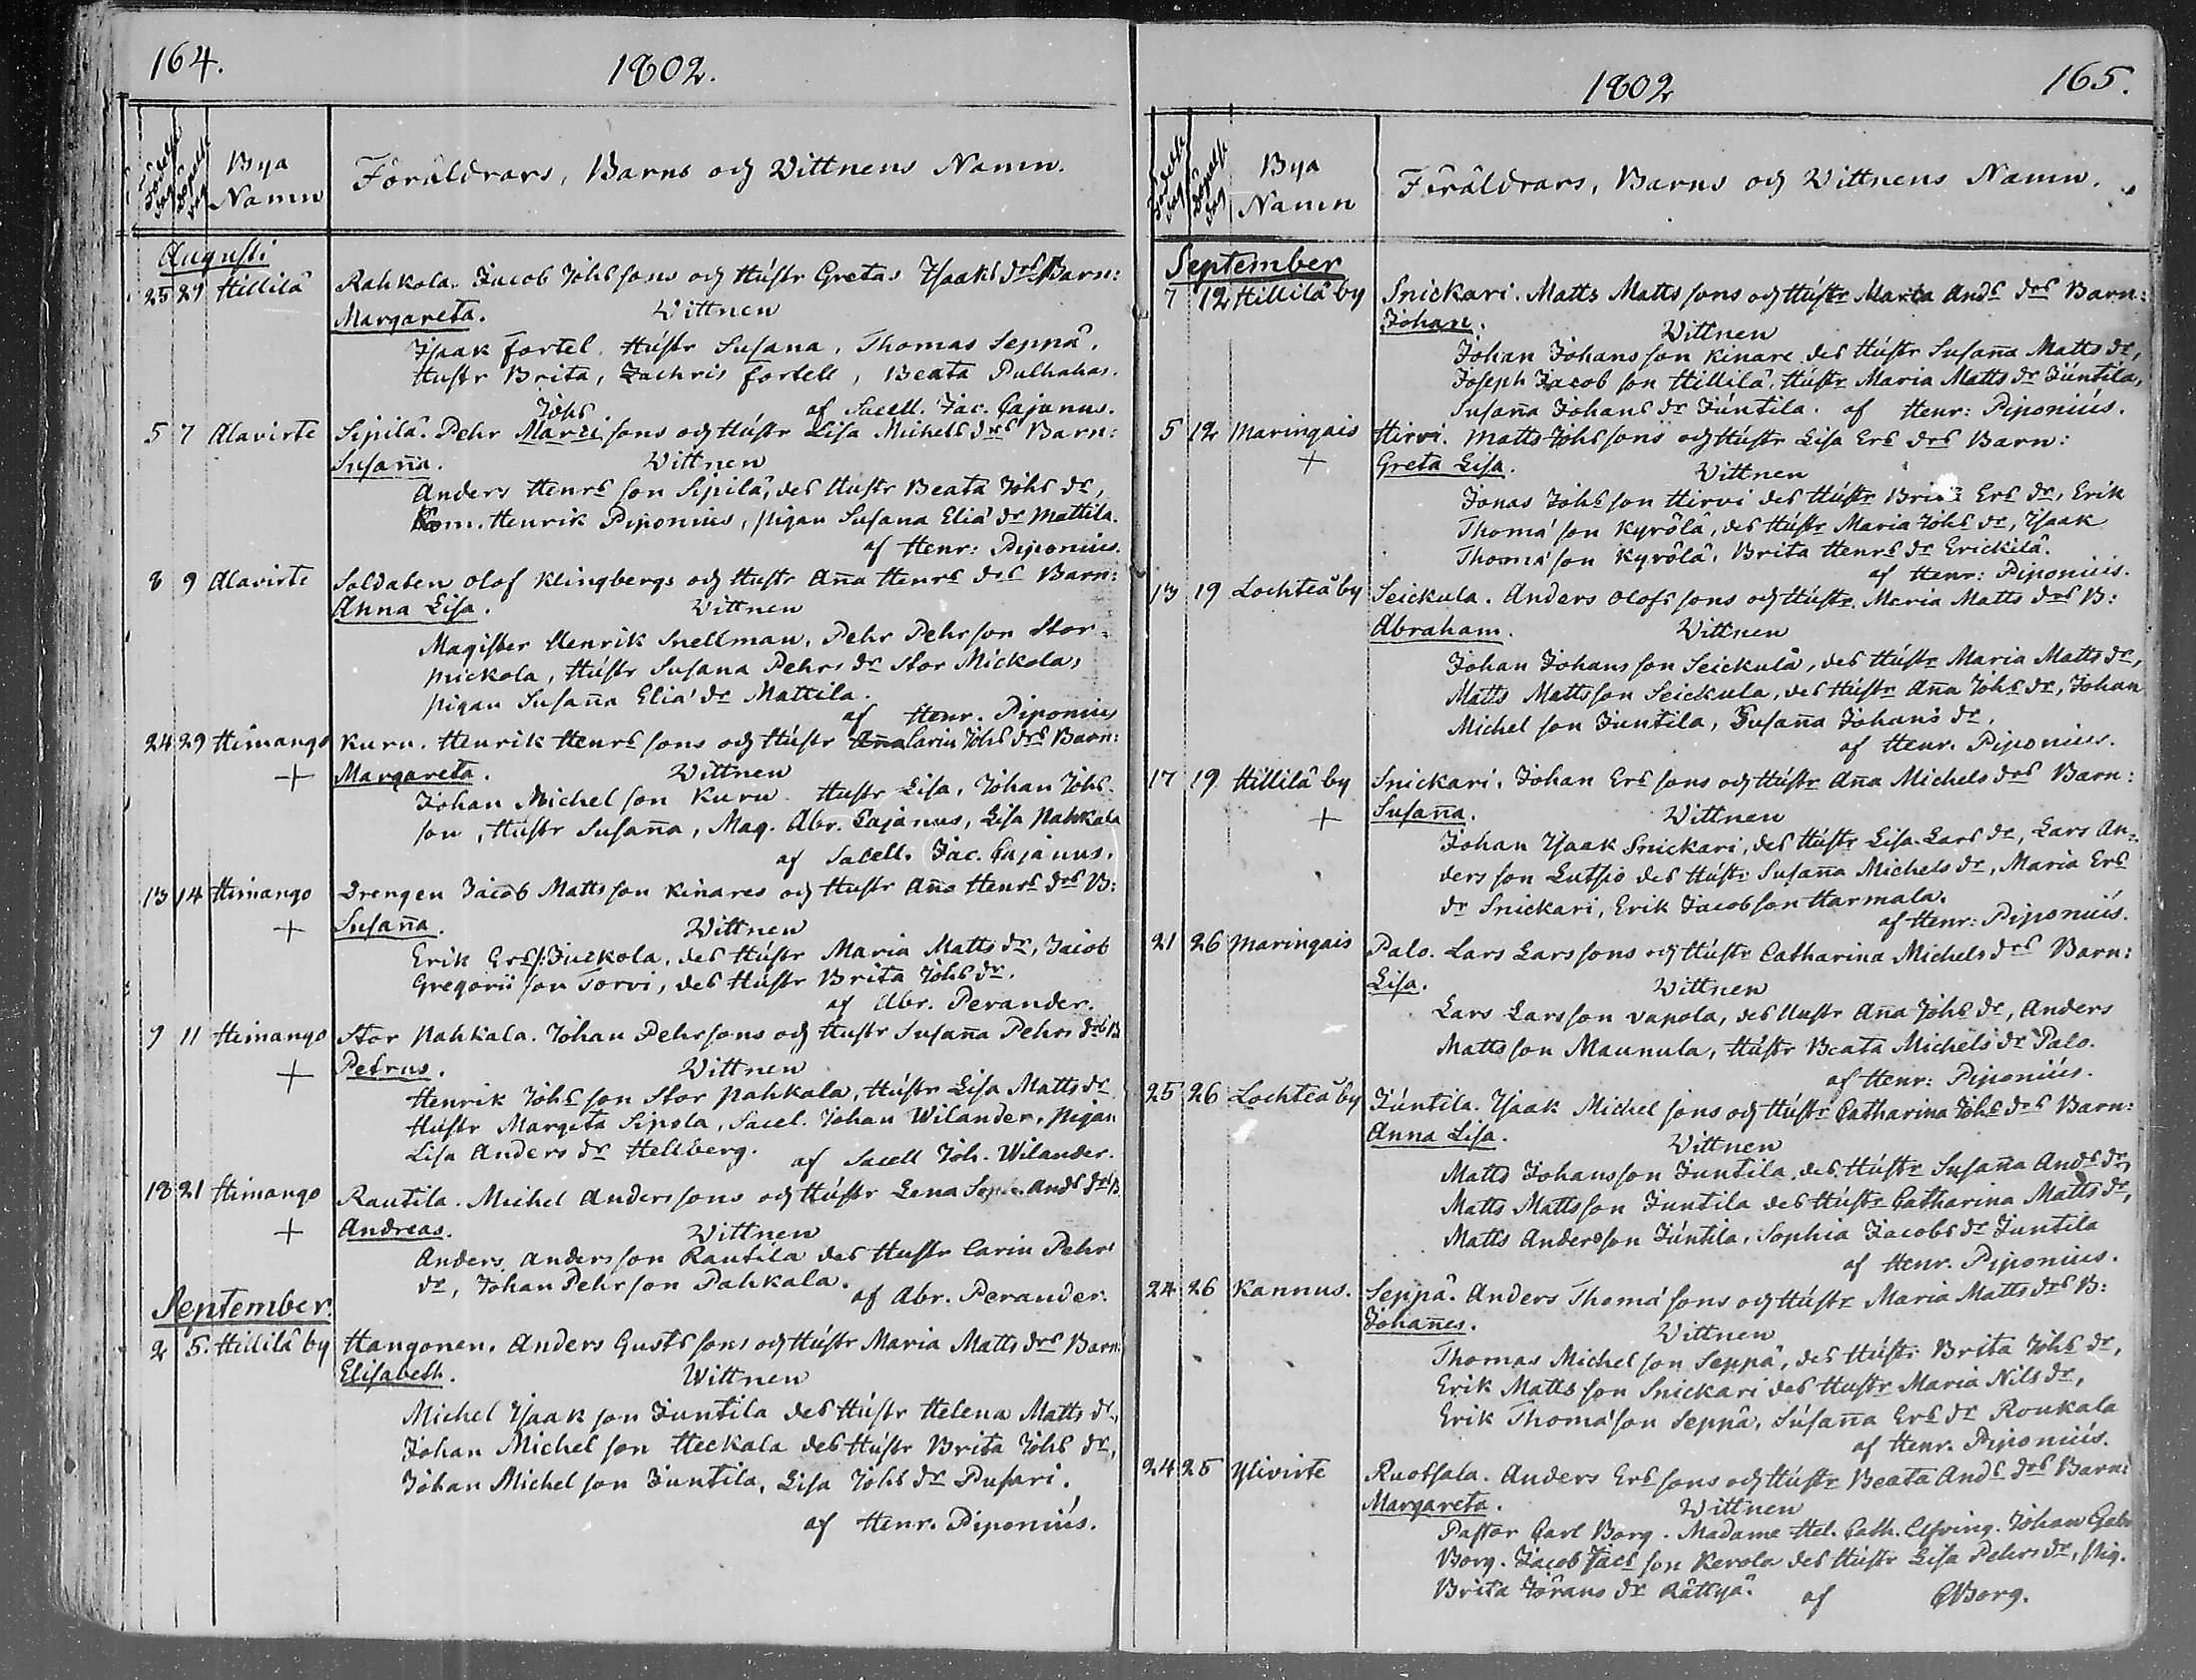 164.
1802.
Födelse dag
Döpelse dag
Bya Namn
Föräldrars, Barns och Wittnens Namn.
Augusti
25 29 Hillilä Rahkola. Jacob Johs sons och Hustr Gretas Isaaks drs Barn:
Margareta. Wittnen
Isaak Fortel. Hustr Susana, Thomas Seppä,
Hustr Brita, Zachris Fortell, Beata Pulhahas.
af Sacell. Jac. Cajanus.
Johs
5 7 Alavirte Sipilä. Pehr Marci sons och Hustr Lisa Michels drs Barn:
Susaña. Wittnen
Anders Henrs son Sipilä, des Hustr Beata Johs dr,
Kom. Henrik Piponius, pigan Susana Eliæ dr Mattila.
af Henr: Piponius.
8 9 Alavirte Soldaten Olof Klingbergs och Hustr Aña Henrs drs Barn:
Anna Lisa. Wittnen
Magister Henrik Snellman, Pehr Pehrson Stor
mickola, Hustr Susana Pehrs dr Stor Mickola,
pigan Susaña Eliæ dr Mattila.
af Henr. Piponius
24 29 Himango Kuru. Henrik Henrs sons och Hustr Aña Carin Johs drs Barn:
+ Margareta. Wittnen
Johan Michelson Kuru Hustr Lisa, Johan Johs
son, Hustr Susaña, Mag. Abr. Cajanus, Lisa Pahkala
af Sacell. Jac. Cajanus.
13 14 Himango Drengen Jacob Mattsson Kinares och Hustr Aña Henrs drs B:
+ Susaña. Wittnen
Erik Ers s: Juckola, des Hustr Maria Matts dr, Jacob
Gregorii son Torvi, des Hustr Brita Johs dr.
af Abr. Perander.
9 11 Himango Stor Pahkala. Johan Pehrsons och Hustr Susaña Pehrs drs B
+ Petrus. Wittnen
Henrik Johs son Stor Pahkala, Hustr Lisa Matts dr
Hustr Margeta Sipola, Sacel. Johan Wilander, Pigan
Lisa Anders dr Hellberg. af Sacell Joh. Wilander.
18 21 Himango Rautila. Michel Anderssons och Hustr Lena Ands drs B
+ Andreas. Wittnen
Anders Andersson Rautila des Hustr Carin Pehrs
dr, Johan Pehrson Pahkala.
af Abr. Perander.
September.
2 5. Hillilä by Hangonen. Anders Gusts sons och Hustr Maria Matts drs Barn:
Elisabeth. Wittnen
Michel Isaakson Juntila des Hustr Helena Matts dr,
Johan Michelson Heckala des Hustr Brita Johs dr,
Johan Michelson Juntila, Lisa Johs dr Pusari.
af Henr. Piponius.
1802
165.
Födelse dag
Döpelse dag
Bya Namn
Föräldrars, Barns och Wittnens Namn.
September
7 12 Hillilä by Snickari. Matts Matts sons och Hustr Maria Ands drs Barn:
Johan. Wittnen
Johan Johansson Kinare des Hustr Susaña Matts dr,
Joseph Jacobson Hillilä, Hustr Maria Matts dr Juntila,
Susaña Johans dr Juntila. af Henr: Piponius.
5 12 Maringais Hirvi. Matts Johs sons och Hustr Lisa Ers drs Barn:
+ Greta Lisa. Wittnen
Jonas Johs son Hirvi des Hustr Brita Ers dr, Erik
Thomæ son Kyrölä, des Hustr Maria Johs dr, Isaak
Thomæ son Kyrölä, Brita Henrs dr Erickilä.
af Henr: Piponius.
13 19 Lochteå by Seickula. Anders Olofs sons och Hustr Maria Matts drs B:
Abraham. Wittnen
Johan Johansson Seickula, des Hustr Maria Matts dr,
Matts Mattsson Seickula, des Hustr Aña Johs dr, Johan
Michelson Juntila, Susaña Johans dr.
af Henr. Piponius.
17 19 Hillilä by Snickari. Johan Ers sons och Hustr Aña Michels drs Barn:
+ Susaña. Wittnen
Johan Isaak Snickari, des Hustr Lisa Lars dr, Lars An-
dersson Lutsio des Hustr Susaña Michels dr, Maria Ers
dr Snickari, Erik Jacobson Harmala.
af Henr: Piponius.
21 26 Maringais Palo. Lars Larssons och Hustr Catharina Michels drs Barn:
Lisa. Wittnen
Lars Larsson Vapola, des Hustr Aña Johs dr, Anders
Mattsson Maunula, Hustr Beata Michels dr Palo.
af Henr: Piponius.
25 26 Lochteå by Juntila. Isaak Michelsons och Hustr Catharina Johs drs Barn:
Anna Lisa. Wittnen
Matts Johansson Juntila, des Hustr Susaña Ands dr,
Matts Mattsson Juntila des Hustr Catharina Matts dr,
Matts Andersson Juntila, Sophia Jacobs dr Juntila
af Henr. Piponius.
24 26 Kannus. Seppä. Anders Thomæ sons och Hustr Maria Matts drs B:
Johañes. Wittnen
Thomas Michelson Seppä, des Hustr Brita Johs dr,
Erik Mattsson Snickari des Hustr Maria Nils dr,
Erik Thomæ son Seppä, Susaña Ers dr Roukala
af Henr. Piponius.
24 25 Ylivirte Ruotsala. Anders Ers sons och Hustr Beata Ands drs Barn:
Margareta. Wittnen
Pastor Carl Borg. Madame Hel. Cath. Elfving. Johan Gabr
Borg. Jacob Jacs son Kerola des Hustr Lisa Pehrs dr, Pig.
Brita Jörans dr Rättyä. af CBorg.